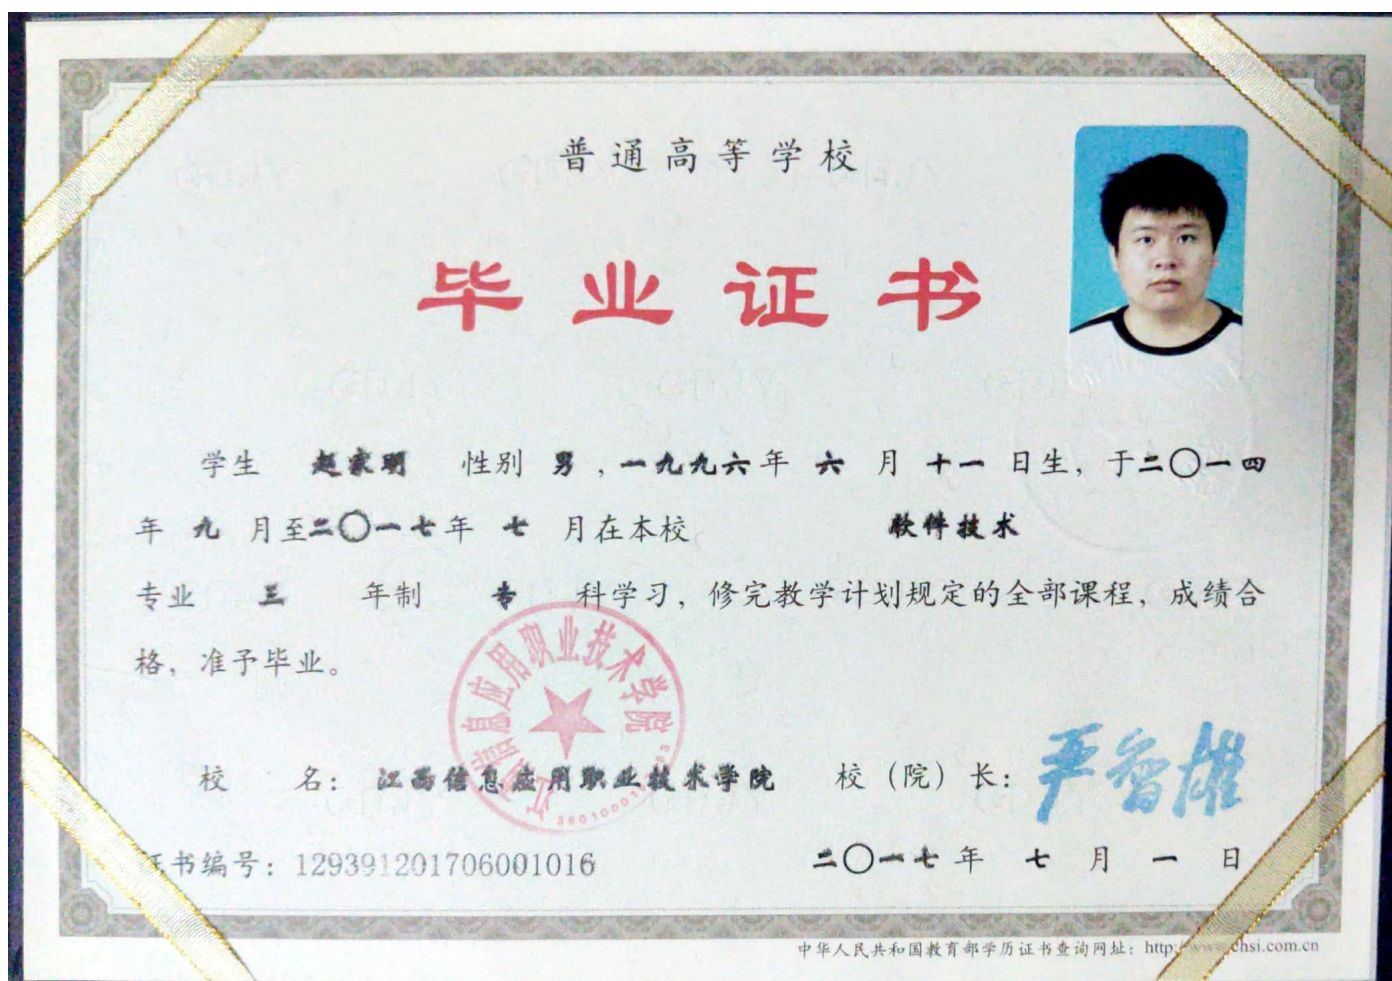 普通高等学校
毕业证书
学生 赵家明 性别 男，一九九六年 六 月 十一 日生，于二〇一四
年 九 月至二〇一七年 七 月在本校 软件技术
专业 三 年制 专 科学习，修完教学计划规定的全部课程，成绩合
格，准予毕业。
江西信息应用职业技术学院
校 名：江西信息应用职业技术学院 校（院）长：严智雄
证书编号：129391201706001016 二〇一七年 七 月 一 日
中华人民共和国教育部学历证书查询网址：http://www.chsi.com.cn